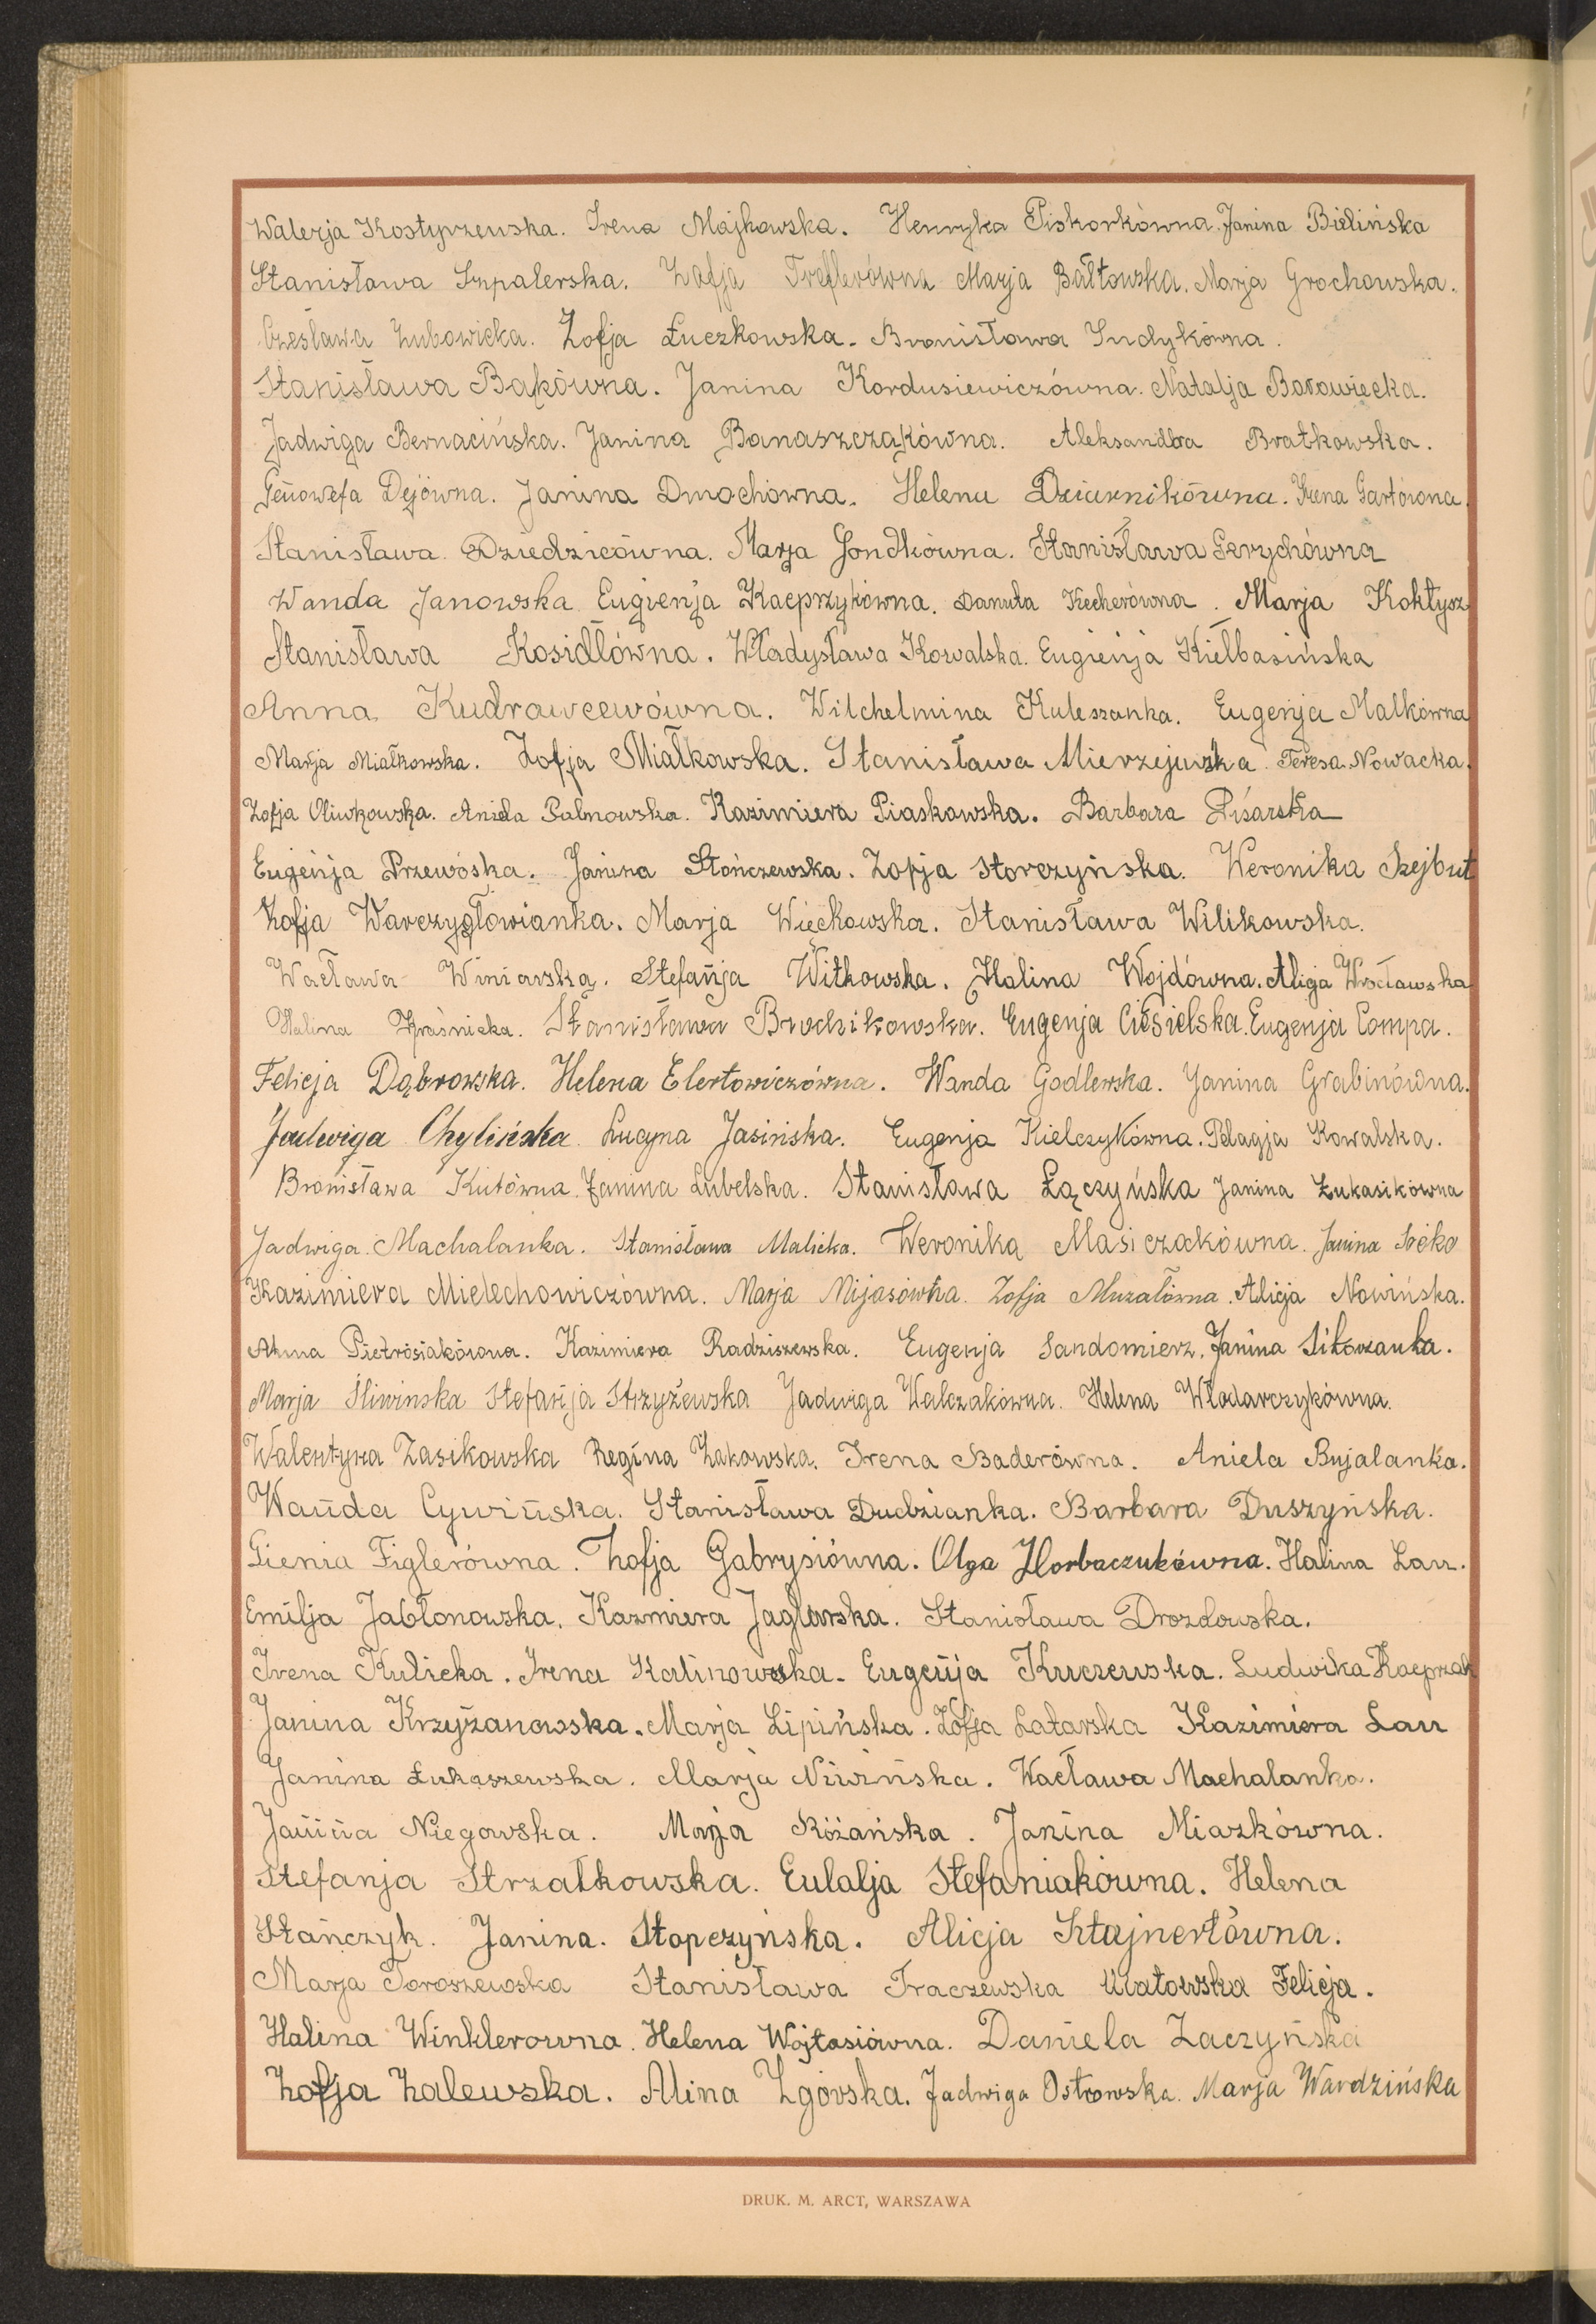 Walerja Kostyrzewska. Irena Majkowska. Henryka Piskorkówna. Janina Bielińska
Stanisława Szpalerska. Zofja Treflerówna Marja Bałtowska. Marja Grochowska.
Czesława Zubowicka. Zofja Łuczkowska. Bronisława Indykówna.
Stanisława Bąkówna. Janina Kordusiewiczówna. Natalja Borowiecka.
Jadwiga Bernacińska. Janina Banaszczakówna. Aleksandra Bratkowska.
Genowefa Dejówna. Janina Dmochówna. Helena Dziarnikówna. Irena Gartówna.
Stanisława Dziedzicówna. Marja Gondkówna. Stanisława Gerychówna
Wanda Janowska Eugienja Kacprzykówna. Danuta Kecherówna. Marja Kołtysz
Stanisława Kosidłówna. Władysława Kowalska. Eugienja Kiełbasińska
Anna Kudrawcewówna. Wilchelmina Kuleszanka. Eugenja Malkówna
Marja Miałkowska. Zofja Miałkowska. Stanisława Mierzejewska Teresa Nowacka.
Zofja Oliwkowska. Aniela Palmowska. Kazimiera Piaskowska. Barbara Pisarska
Eugenja Przewóska. Janina Słończewska. Zofja Storczyńska. Weronika Szejbut
Zofja Warczygłowianka. Marja Więckowska. Stanisława Wilikowska.
Wacława Winiarska. Stefanja Witkowska. Halina Wojdówna. Alicja Wrocławska
Halina Kraśnicka. Stanisława Brodzikowska. Eugenja Ciesielska. Eugenja Compa.
Felicja Dąbrowska. Helena Elertowiczówna. Wanda Godlewska. Janina Grabinówna.
Jadwiga Chylińska Lucyna Jasińska. Eugenja Kielczykówna. Pelagja Kowalska.
Bronisława Kutówna. Janina Lubelska. Stanisława Łączyńska Janina Łukasikówna
Jadwiga Machalanka. Stanisława Malicka. Weronika Masiczakówna. Janina
Kazimiera Mielechowiczówna. Marja Mijasówna. Zofja Muzałówna. Alicja Nowińska.
Anna Pietrosiakówna. Kazimiera Radziszewska. Eugenja Sandomierz. Janina Sikorzanka.
Marja Śliwinska Stefanja Strzyżewska Jadwiga Walczakówna. Helena Włodarczykówna.
Walentyna Zasikowska Regina Żakowska. Irena Baderówna. Aniela Bujalanka.
Wanda Cywińska. Stanisława Dudzianka. Barbara Duszyńska.
Gienia Figlerówna. Zofja Gabrysiówna. Olga Horbaczukówna. Halina Lau.
Emilja Jabłonowska. Kazmiera Jaglarska. Stanisława Drozdowska.
Irena Kulicka. Irena Kalinowska. Eugenja Kurzewska. Ludwika Kacprzak
Janina Krzyżanowska. Marja Lipińska. Zofja Latarska Kazimiera Lau
Janina Łukaszewska. Marja Niwińska. Wacława Machalanka.
Janina Niegowska. Marja Różańska. Janina Miazkówna.
Stefanja Strzałkowska. Eulalja Stefaniakówna. Helena
Stańczyk. Janina. Stopczyńska. Alicja Sztajnertówna.
Marja Toroszewska Stanisława Traczewska Ułatowska Felicja.
Halina Winklerowna. Helena Wójtasiówna. Daniela Zaczyńska
Zofja Zalewska. Alina Zgórska. Jadwiga Ostrowska. Marja Wardzińska
DRUK. M. ARCT, WARSZAWA